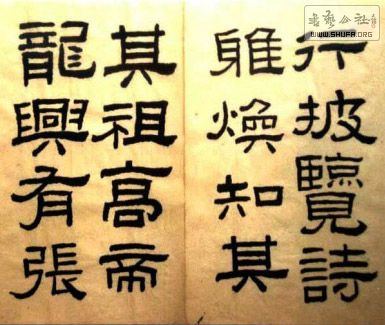 行披覽詩
雅煥知其
其祖高帝
龍興有張
書藝公社
WWW.SHUFA.ORG